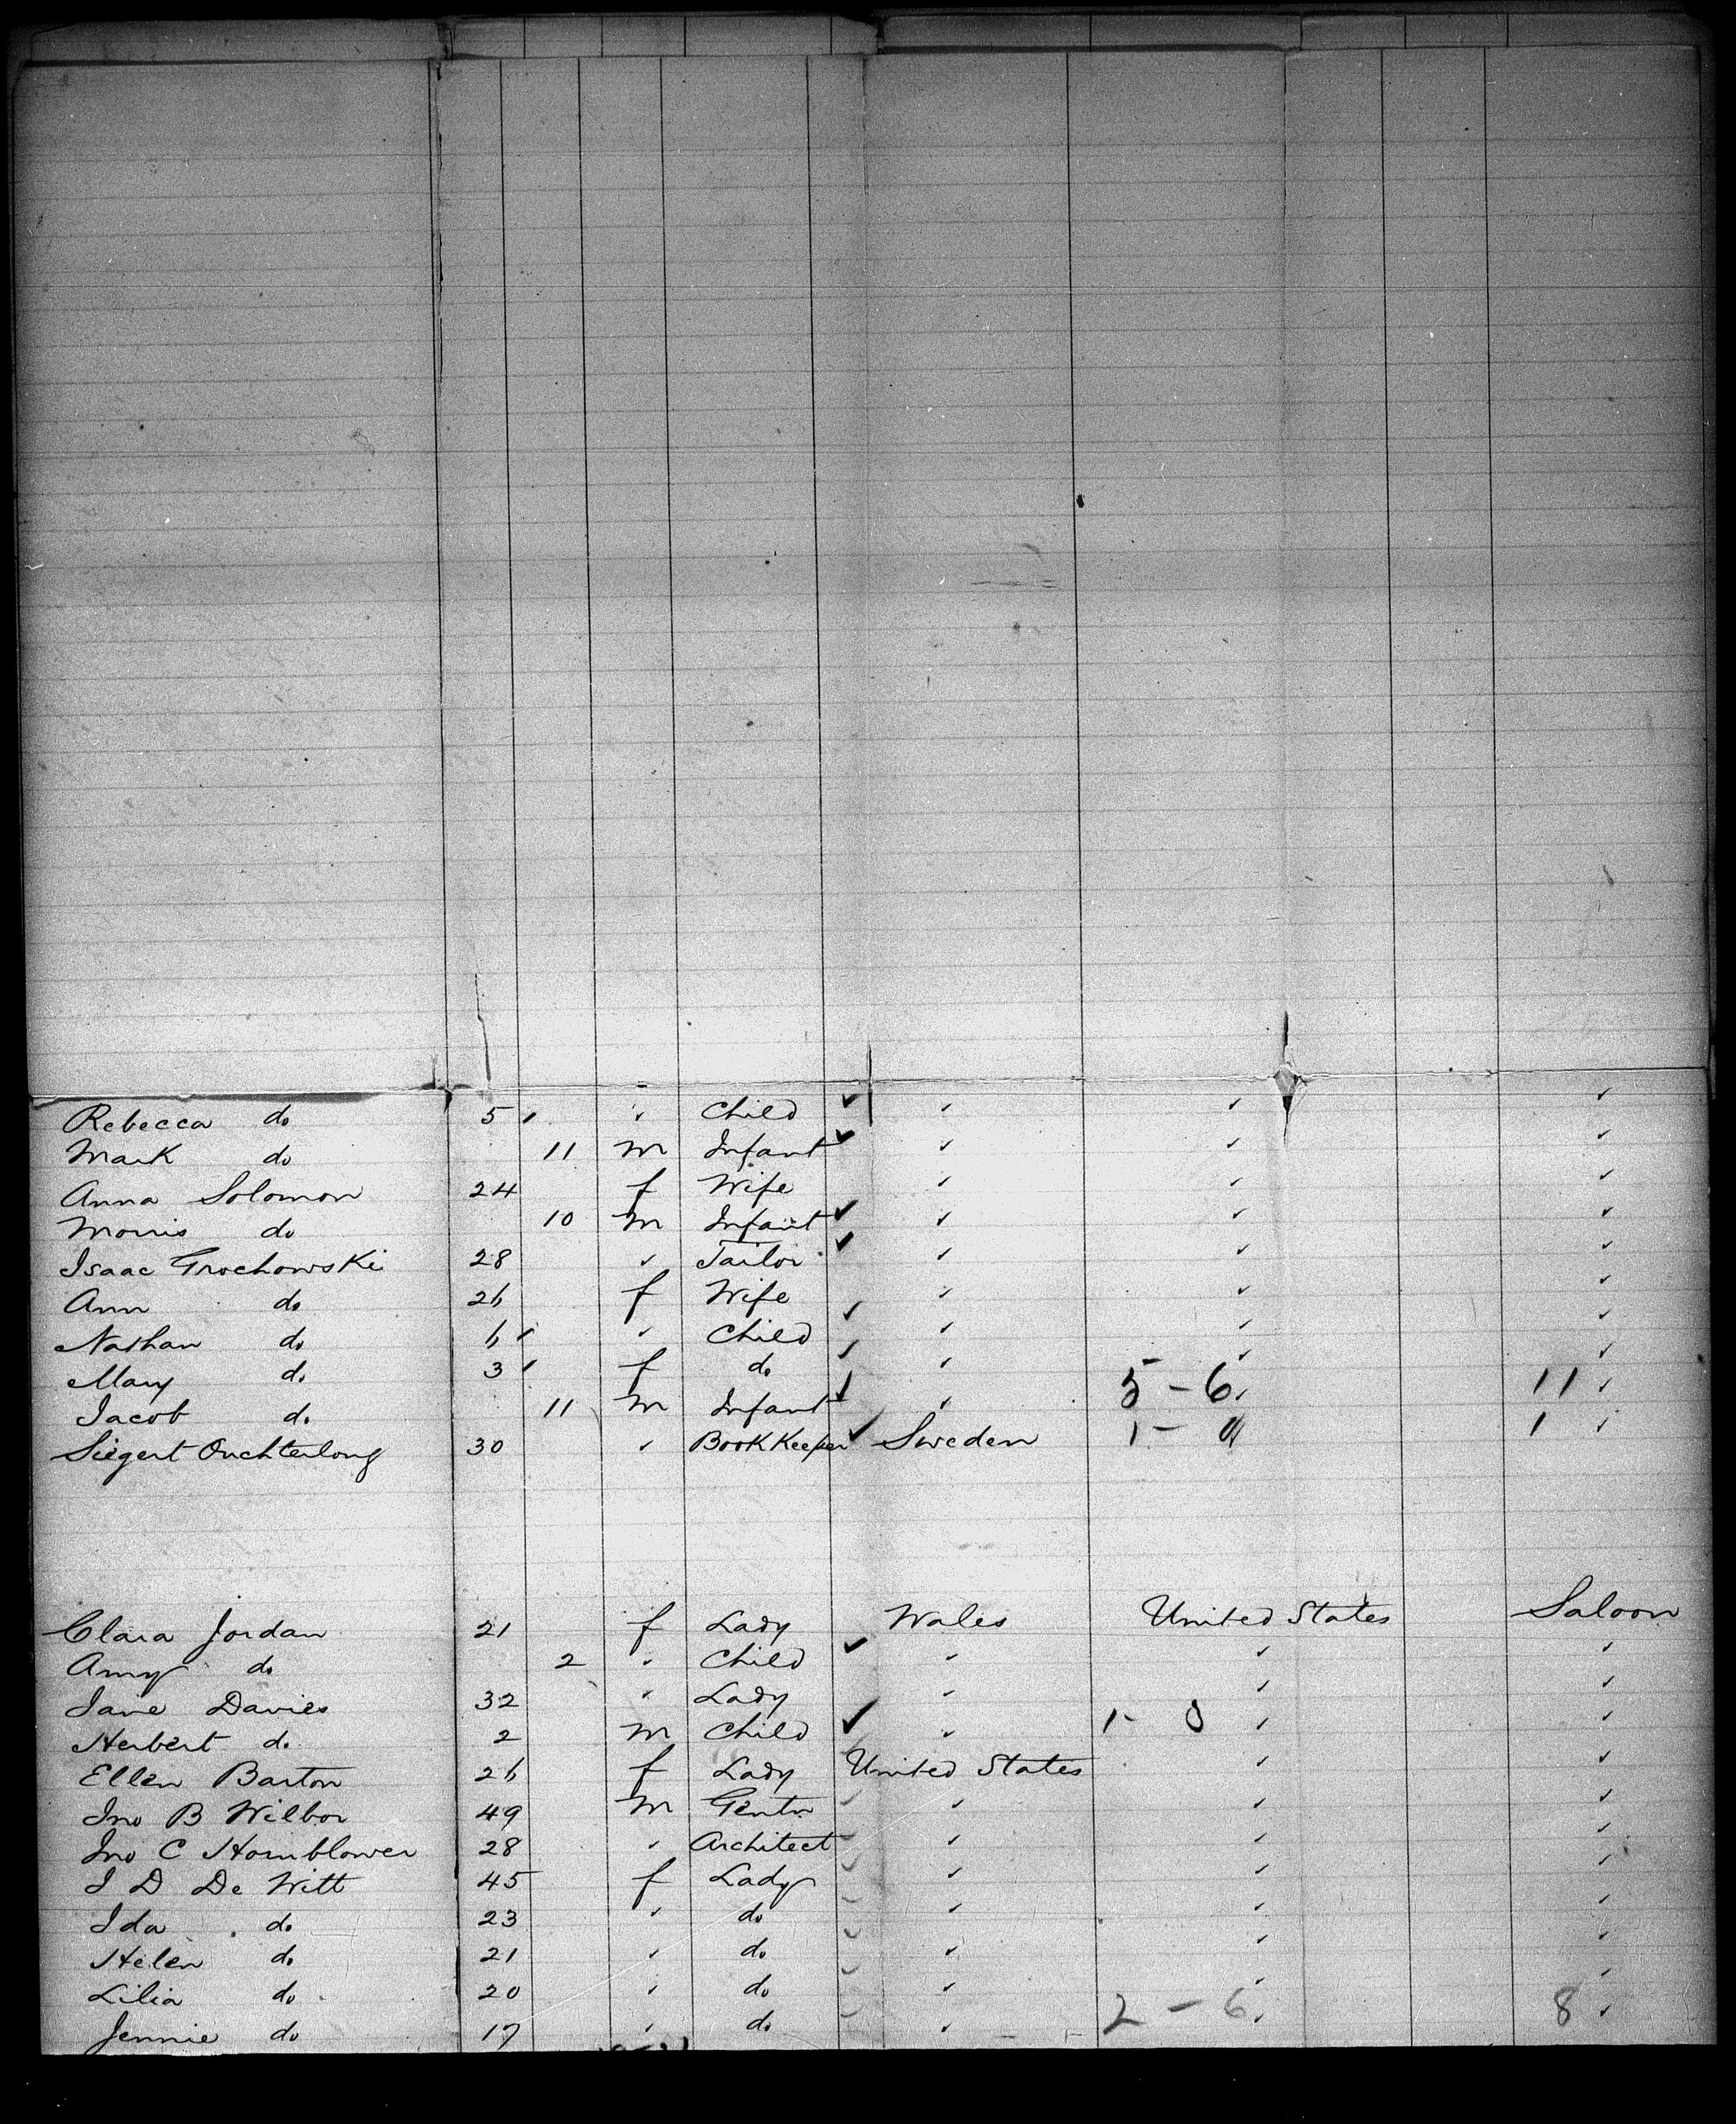 Rebecca do 5 ✓ ✓ Child ✓ ✓ ✓ ✓
Mark do 11 m Infant ✓ ✓ ✓ ✓
Anna Solomon 24 f Wife ✓ ✓ ✓
Morris do 10 m Infant ✓ ✓ ✓ ✓
Isaac Grochowski 28 ✓ Tailor ✓ ✓ ✓ ✓
Ann do 26 f Wife ✓ ✓ ✓
Nathan do 6 ✓ ✓ Child ✓ ✓ ✓ ✓
Mary do 3 ✓ f do ✓ ✓ ✓ ✓
Jacob do 11 m Infant ✓ ✓ 5 - 6 ✓ 11 ✓
Siegert Ouchterlong 30 ✓ BookKeeper ✓ Sweden 1 - 1 ✓
Clara Jordan 21 f Lady Wales United States Saloon
Amy do 2 ✓ Child ✓ ✓ ✓ ✓
Jane Davies 32 ✓ Lady ✓ ✓ ✓
Herbert do 2 m Child ✓ ✓ 1 - 0 ✓ ✓
Ellen Barton 26 f Lady United States ✓ ✓
Jno B Wilbor 49 m Gentn ✓ ✓ ✓ ✓
Jno C Hornblower 28 ✓ Architect ✓ ✓ ✓ ✓
J D De Witt 45 f Lady ✓ ✓ ✓ ✓
Ida do 23 ✓ do ✓ ✓ ✓ ✓
Helen do 21 ✓ do ✓ ✓ ✓ ✓
Lilia do 20 ✓ do ✓ ✓ ✓ ✓
Jennie do 17 ✓ do ✓ ✓ 2 - 6 ✓ 8 ✓